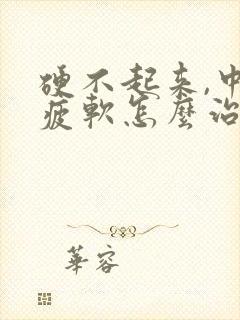 硬不起来,中
疲軟怎麼治
華容